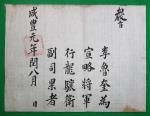 教旨
李魯奎為
宣略將軍
行龍驤衛
副司果者
咸豐元年閏八月 日